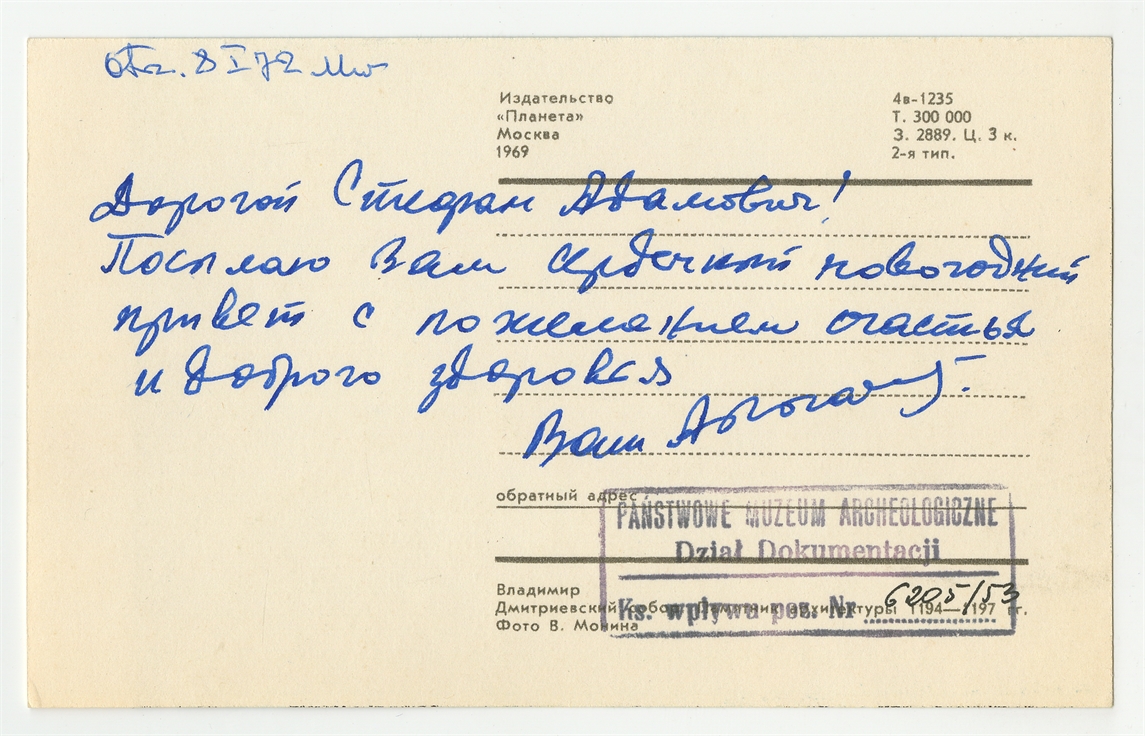 8 I 72
Издательство
«Планета»
Москва
1969
4в-1235
Т. 300 000
З. 2889. Ц. 3 к.
2-я тип.
Дорогой Стефан Адамович!
Посылаю Вам сердечный новогодний
привет с пожеланием счастья
и доброго здоровья
Ваш
обратный адрес:
PAŃSTWOWE MUZEUM ARCHEOLOGICZNE
Dział Dokumentacji
Ks. wpływu poz. Nr 6205/53
Владимир
Дмитриевский собор. Памятник архитектуры 1194—1197 гг.
Фото В. Монина